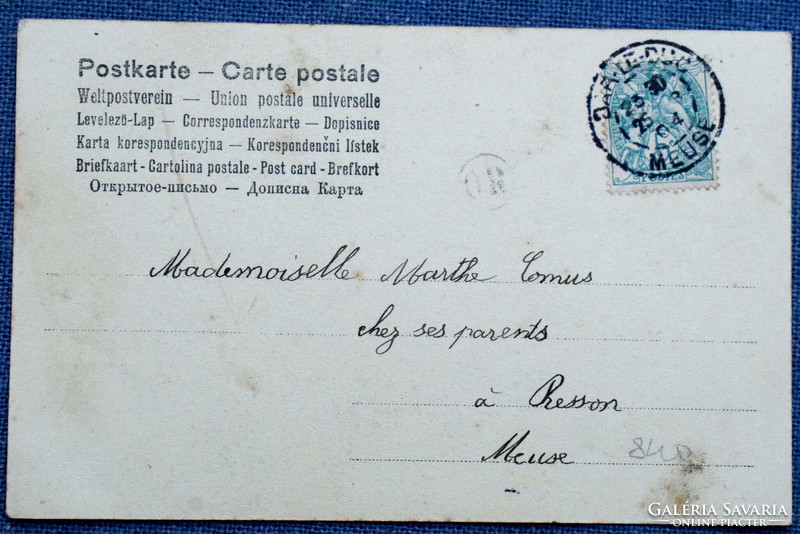 Postkarte – Carte postale
Weltpostverein — Union postale universelle
Levelező-Lap — Correspondenzkarte — Dopisnice
Karta korespondencyjna — Korespondenčni lístek
Briefkaart - Cartolina postale - Post card - Brefkort
Открытое-письмо — Дописна Карта
BAR-LE-DUC
25
04
MEUSE
OR
Mademoiselle Marthe Comus
chez ses parents
à Resson
Meuse
840
GALÉRIA SAVARIA
ONLINE PIACTÉR